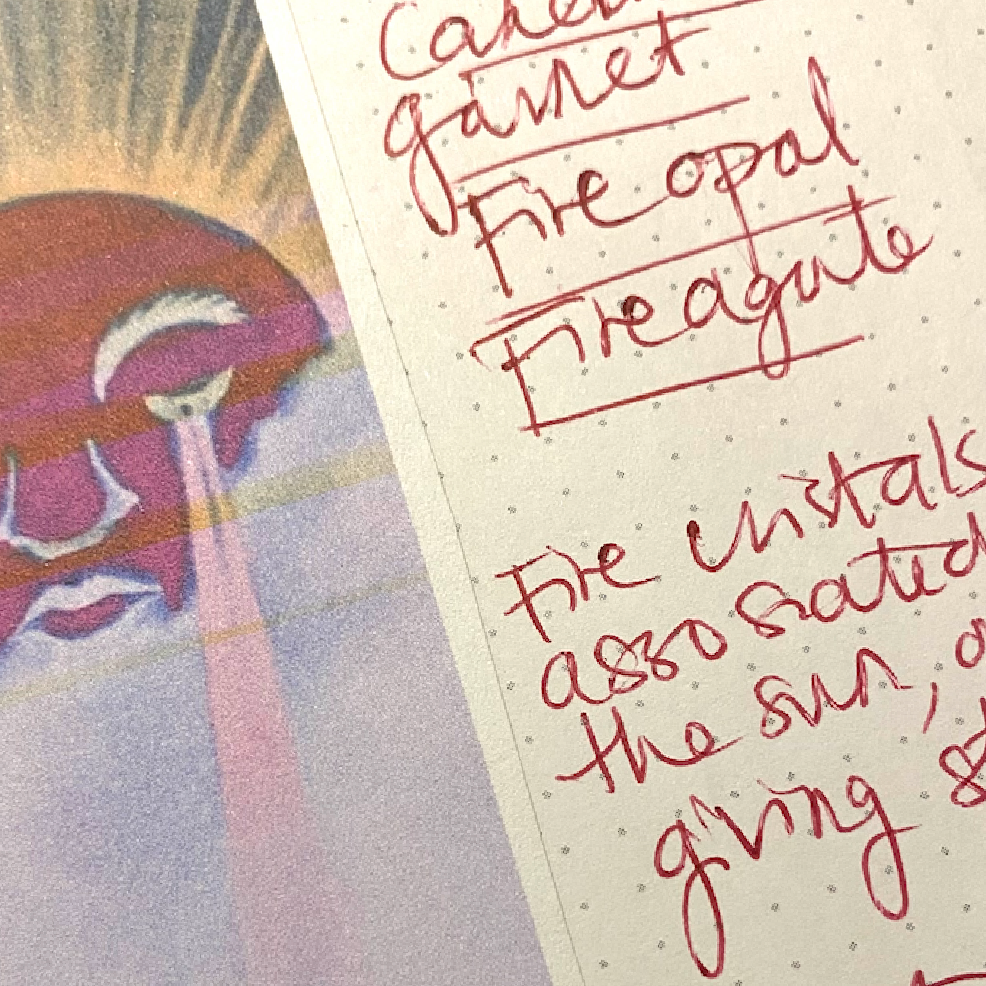 garnet
Fire opal
Fire agate
Fire cristals
assosiated
the sun,
giving